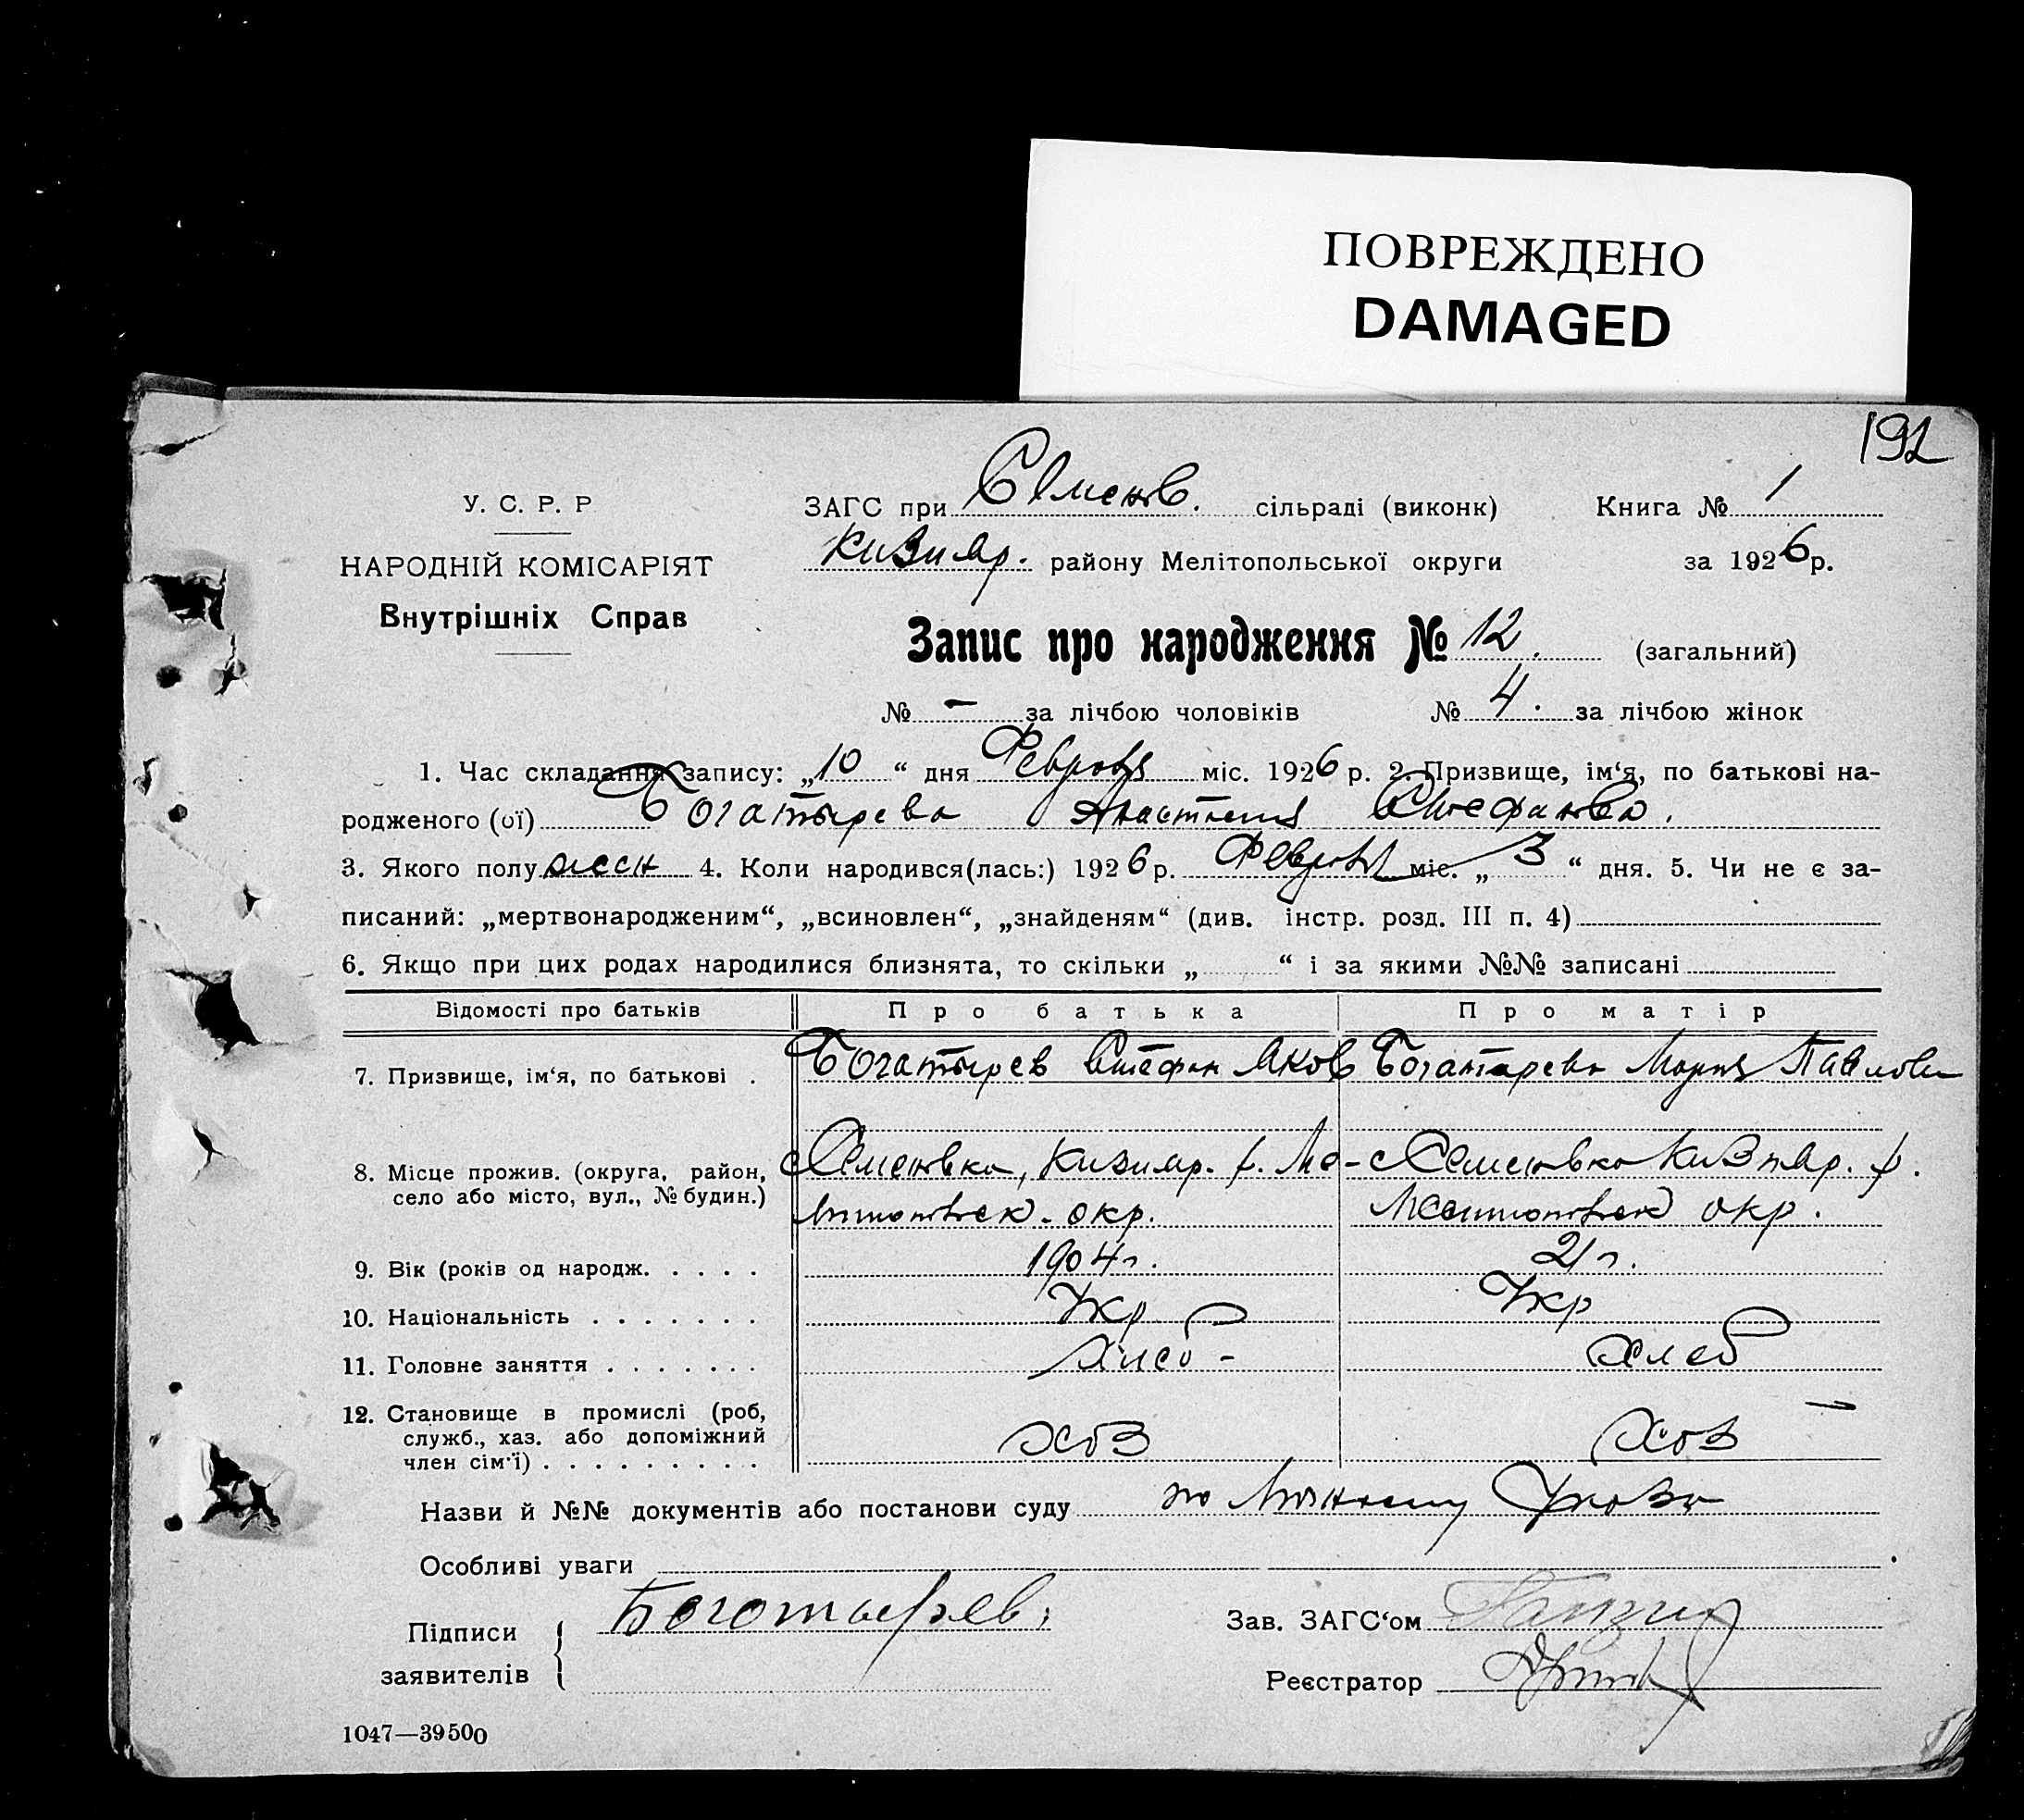 ПОВРЕЖДЕНО
DAMAGED
192
У. С. Р. Р
НАРОДНІЙ КОМІСАРІЯТ
Внутрішніх Справ
ЗАГС при Семенов. сільраді (виконк) Книга № 1
Кизияр. району Мелітопольської округи за 1926 р.
Запис про народження № 12. (загальний)
№ – за лічбою чоловіків № 4. за лічбою жінок
1. Час складання запису: „10“ дня Февраля міс. 1926 р. 2. Призвище, ім‘я, по батькові на-
родженого (ої) Богатырева Анастасия Стефанова.
3. Якого полу жен 4. Коли народився(лась:) 1926 р. Февраля міс. „3“ дня. 5. Чи не є за-
писаний: „мертвонародженим“, „всиновлен“, „знайденям“ (див. інстр. розд. III п. 4)
6. Якщо при цих родах народилися близнята, то скільки „ “ і за якими №№ записані
Відомості про батьків Про батька Про матір
7. Призвище, ім‘я, по батькові . Богатырев Стефан Яков Богатырева Мария Павлова
8. Місце прожив. (округа, район, с Семеновка, Кизияр. р. Ме- с Семеновка Кизияр. р.
село або місто, вул., № будин.) литопольск. окр. Мелитопольск окр.
9. Вік (років од народж. . . . . 1904 г. 21 г.
10. Національність . . . . . . . Укр Укр
11. Головне заняття . . . . . . . Хлеб - Хлеб
12. Становище в промислі (роб,
служб., хаз. або допоміжний хоз хоз
член сім‘ї) . . . . . . . . .
Назви й №№ документів або постанови суду по личному
Особливі уваги
Підписи Богатырев. Зав. ЗАГС‘ом
заявителів Реєстратор
1047—39500